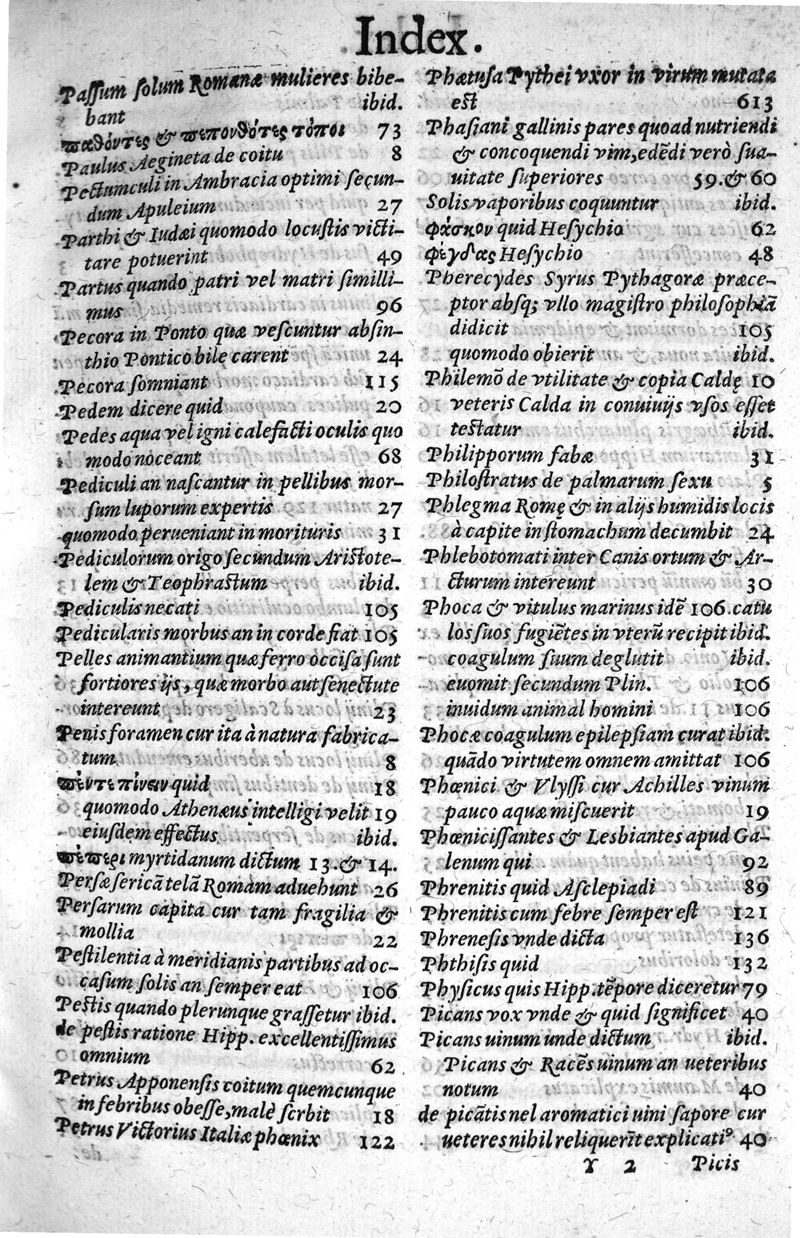 Index.
Passum solum Romanæ mulieres bibe-
bant ibid.
παθόντες & πεπονθότες τόποι 73
Paulus Aegineta de coitu 8
Pectumculi in Ambracia optimi secun-
dum Apuleium 27
Parthi & Iudæi quomodo locustis victi-
tare potuerint 49
Partus quando patri vel matri simili-
mus 96
Pecora in Ponto quæ vescuntur absin-
thio Pontico bile carent 24
Pecora somniant 115
Pedem dicere quid 20
Pedes aqua vel igni calefacti oculis quo
modo noceant 68
Pediculi an nascantur in pellibus mor-
sum luporum expertis 27
quomodo perueniant in morituris 31
Pediculorum origo secundum Aristote-
lem & Teophrastum ibid.
Pediculis necati 105
Pedicularis morbus an in corde fiat 105
Pelles animantium quæ ferro occisa sunt
fortiores ijs, quæ morbo aut senectute
intereunt 23
Penis foramen cur ita à natura fabrica-
tum 8
πέντε πίνειν quid 18
quomodo Athenæus intelligi velit 19
eiusdem effectus ibid.
πέπερι myrtidanum dictum 13. & 14.
Persæ sericā telā Romam aduehunt 26
Persarum capita cur tam fragilia &
mollia 22
Pestilentia à meridianis partibus ad oc-
casum solis an semper eat 106
Pestis quando plerunque grassetur ibid.
de pestis ratione Hipp. excellentissimus
omnium 62
Petrus Apponensis coitum quemcunque
in febribus obesse, malè scrbit 18
Petrus Victorius Italiæ phœnix 122
Phætusa Pythei vxor in virum mutata
est 613
Phasiani gallinis pares quoad nutriendi
& concoquendi vim, edēdi verò sua-
uitate superiores 59. & 60
Solis vaporibus coquuntur ibid.
φάσκον quid Hesychio 62
Hesychio 48
Pherecydes Syrus Pythagoræ præce-
ptor absq; vllo magistro philosophiā
didicit 105
quomodo obierit ibid.
Philemō de vtilitate & copia Caldę 10
veteris Calda in conuiuijs vsos esset
testatur ibid.
Philipporum fabæ 31
Philostratus de palmarum sexu 5
Phlegma Romę & in alijs humidis locis
à capite in stomachum decumbit 24
Phlebotomati inter Canis ortum & Ar-
cturum intereunt 30
Phoca & vitulus marinus idē 106. catu
los suos fugiētes in vterū recipit ibid.
coagulum suum deglutit ibid.
euomit secundum Plin. 106
inuidum animal homini 106
Phocæ coagulum epilepsiam curat ibid.
quādo virtutem omnem amittat 106
Phœnici & Vlyssi cur Achilles vinum
pauco aquæ miscuerit 19
Phœnicissantes & Lesbiantes apud Ga-
lenum qui 92
Phrenitis quid Asclepiadi 89
Phrenitis cum febre semper est 121
Phrenesis vnde dicta 136
Phthisis quid 132
Physicus quis Hipp. tēpore diceretur 79
Picans vox vnde & quid significet 40
Picans uinum unde dictum ibid.
Picans & Racēs uinum an ueteribus
notum 40
de picātis nel aromatici uini sapore cur
ueteres nihil reliquerīt explicatiꝰ 40
Y 2 Picis